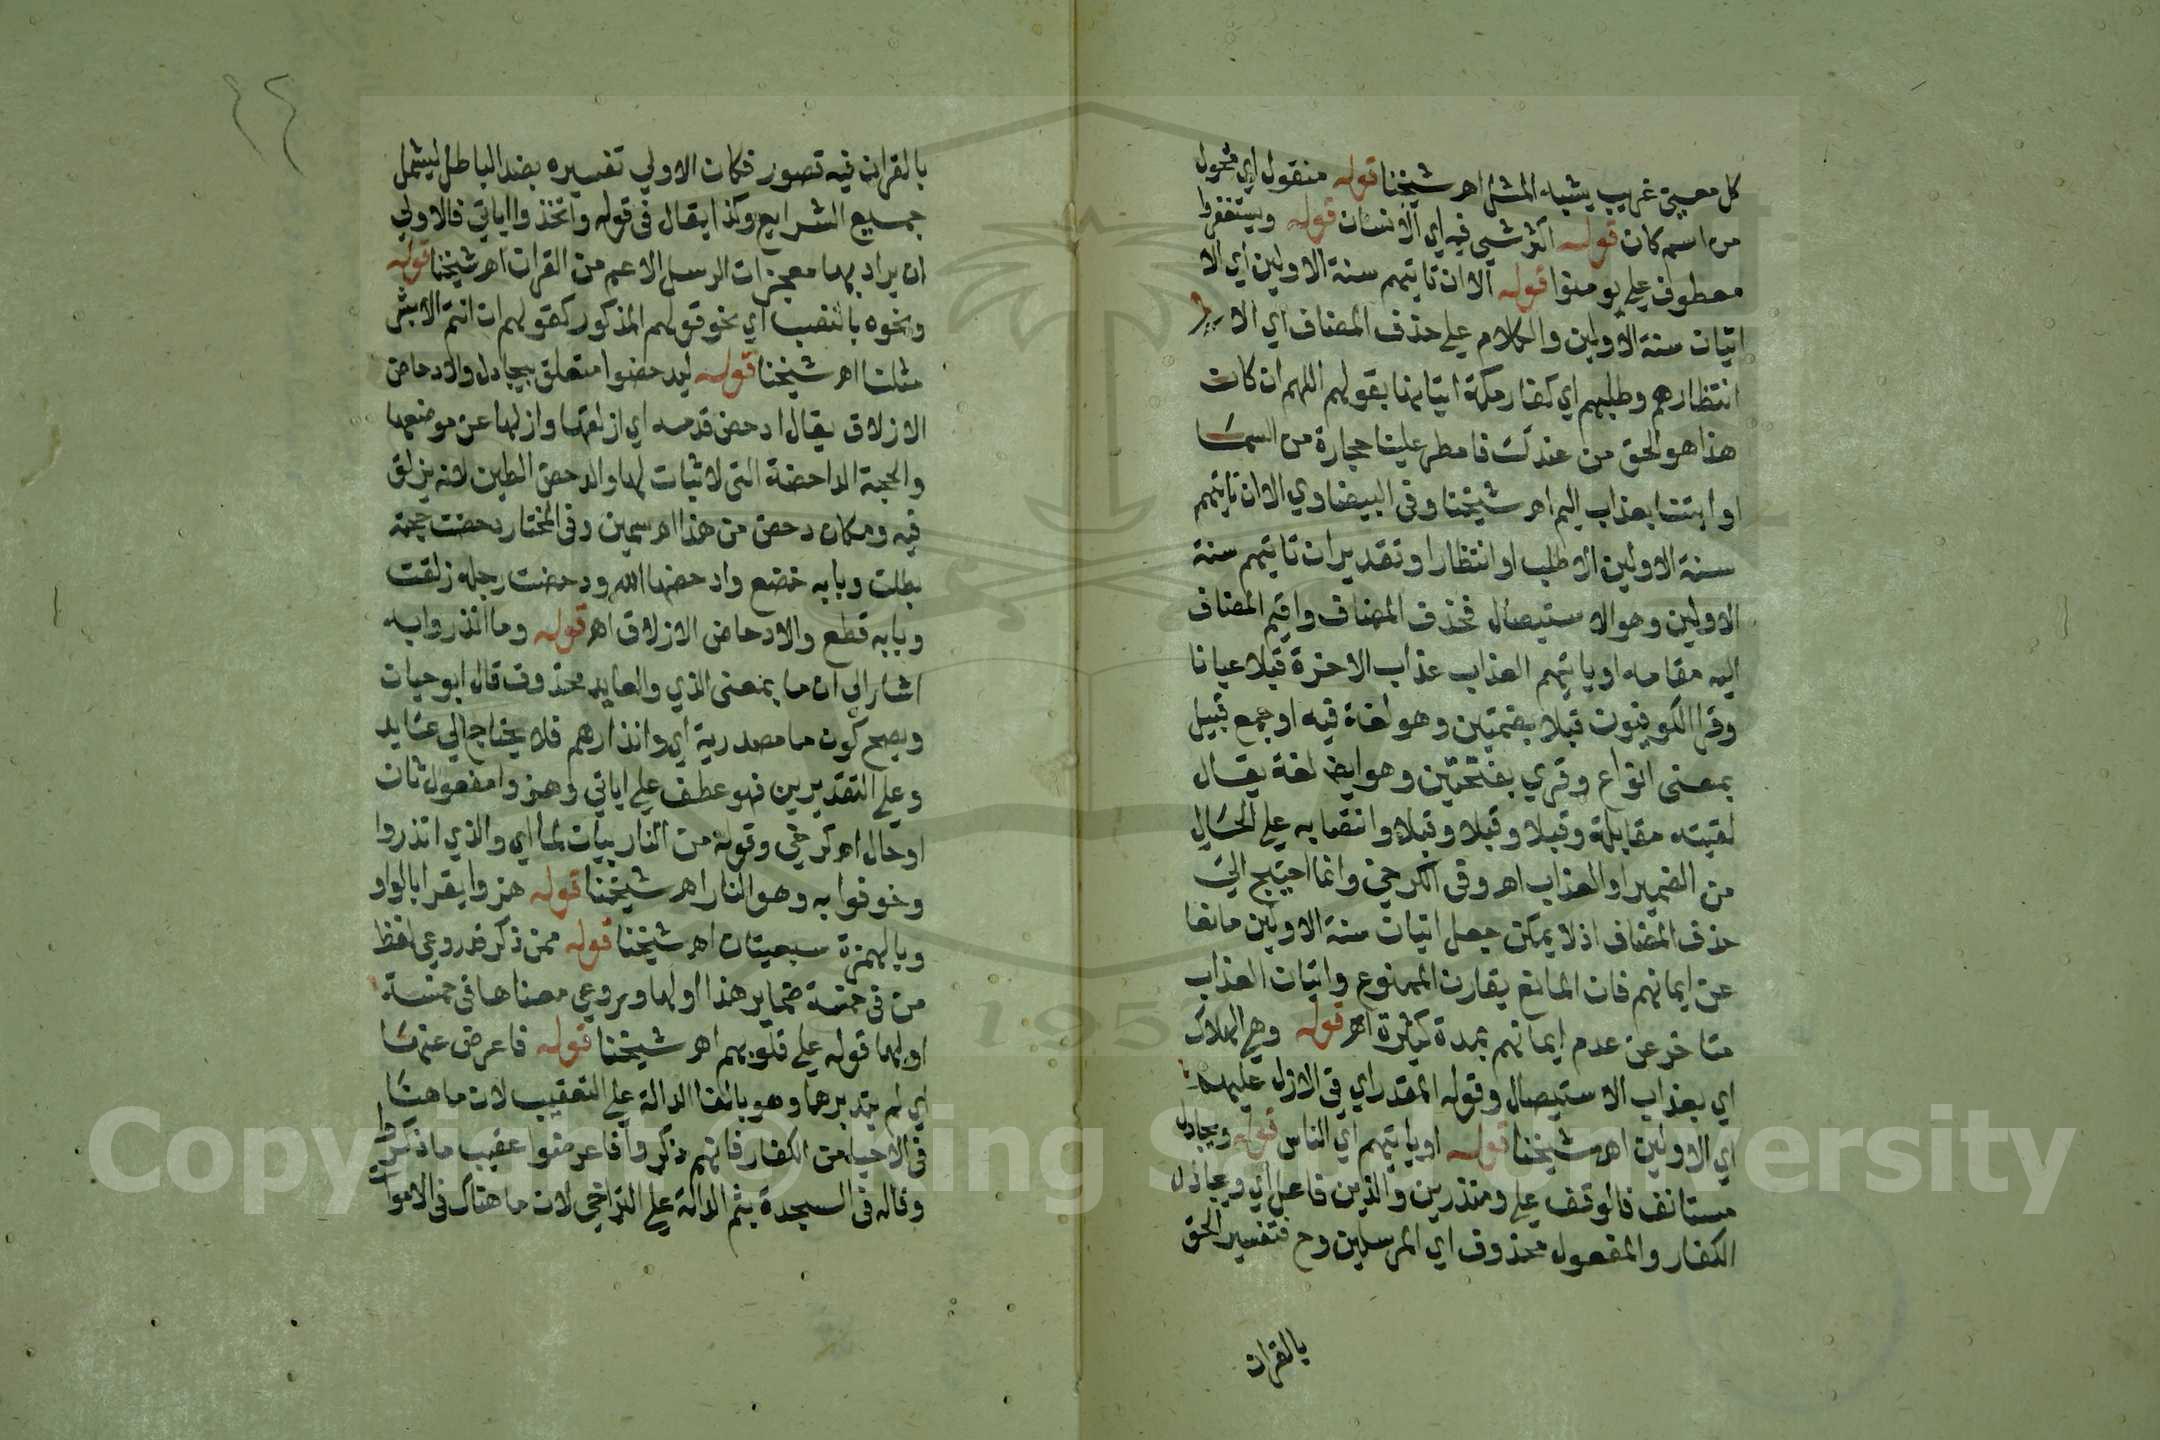 كل معنى غريب يشبه المثل اهـ شيخنا قوله منقول اي محول
من اسم كان قوله اكثر شيى فيه اي الانسان قوله ويستغفروا
معطوف على يومنوا قوله الا ان تاتيهم سنة الاولين اي الا
اتيان سنة الاولين والكلام على حذف المضاف اي الا
انتظارهم وطلبهم اي كفار مكة اتيانها بقولهم اللهم ان كان
هذا هو الحق من عندك فامطر علينا حجارة من السما
او ايتنا بعذاب اليم اهـ شيخنا وفى البيضاوي الا ان تاتيهم
سنة الاولين الا طلب او انتظار او تقدير ان تاتيهم سنة
الاولين وهو الاستيصال فحذف المضاف واقيم المضاف
اليه مقامه او ياتيهم العذاب عذاب الاخرة قبلا عيانا
وقرا الكوفيون قبلا بضمتين وهو لغة فيه او جمع قبيل
بمعنى انواع وقري بفتحتين وهو ايضا لغة يقال
لقيته مقابلة وقبلا وقبلا وقبلا وانتصابه على الحال
من الضمير او العذاب اهـ وفى الكرخي وانما احتيج الي
حذف المضاف اذ لا يمكن جعل اتيان سنة الاولين مانعا
عن ايمانهم فان المانع يقارن الممنوع واتيان العذاب
متاخر عن عدم ايمانهم بمدة كثيرة اهـ قوله وهي الهلاك
اي بعذاب الاستيصال وقوله المقدر اي فى الازل عليهم
اي الاولين اهـ شيخنا قوله او ياتيهم اي الناس قوله ويجادل
مستانف فالوقف على ومنذرين والذين فاعل اي ويجادل
الكفار والمفعول محذوف اي المرسلين وح فتفسير الحق
بالقران
٢٤
بالقران فيه تصور فكان الاولي تفسيره بضد الباطل ليشمل
جميع الشرايع وكذا يقال فى قوله واتخذوا اياتي فالاولي
ان يراد بها معجزات الرسل الاعم من القران اهـ شيخنا قوله
ونحوه بالنصب اي نحو قولهم المذكور كقولهم ان انتم الا بشر
مثلنا اهـ شيخنا قوله ليدحضوا متعلق بيجادل والادحاض
الازلاق يقال ادحض قدمه اي ازلقها وازلها عن موضعها
والحجة الداحضة التى لا ثبات لها والدحض الطين لانه يزلق
فيه ومكان دحض من هذا اهـ سمين وفى المختار دحضت حجته
بطلت وبابه خضع وادحضها الله ودحضت رجله زلقت
وبابه قطع والادحاض الازلاق اهـ قوله وما انذروا به
اشار الى ان ما بمعنى الذي والعايد محذوف قال ابو حيان
ويصح كون ما مصدرية اي وانذارهم فلا يحتاج الي عايد
وعلى التقديرين فهو عطف على اياتي وهزوا مفعول ثان
او حال اهـ كرخي وقوله من النار بيان لما اي والذي انذروا
وخوفوا به وهو النار اهـ شيخنا قوله هزوا يقرا بالواو
وبالهمزة سبعيتان اهـ شيخنا قوله ممن ذكر قد روعي لفظ
من فى خمسة ضماير هذا اولها وروعي معناها فى خمسة
اولها قوله على قلوبهم اهـ شيخنا قوله فاعرض عنها
اي لم يتدبرها وهو بالفا الدالة على التعقيب لان ما هنا
فى الاحيا من الكفار فانهم ذكروا فاعرضوا عقيب ما ذكروا
وقاله فى السجدة بثم الدالة على التراخي لان ما هناك فى الاموات
Copyright © King Saud University
1957